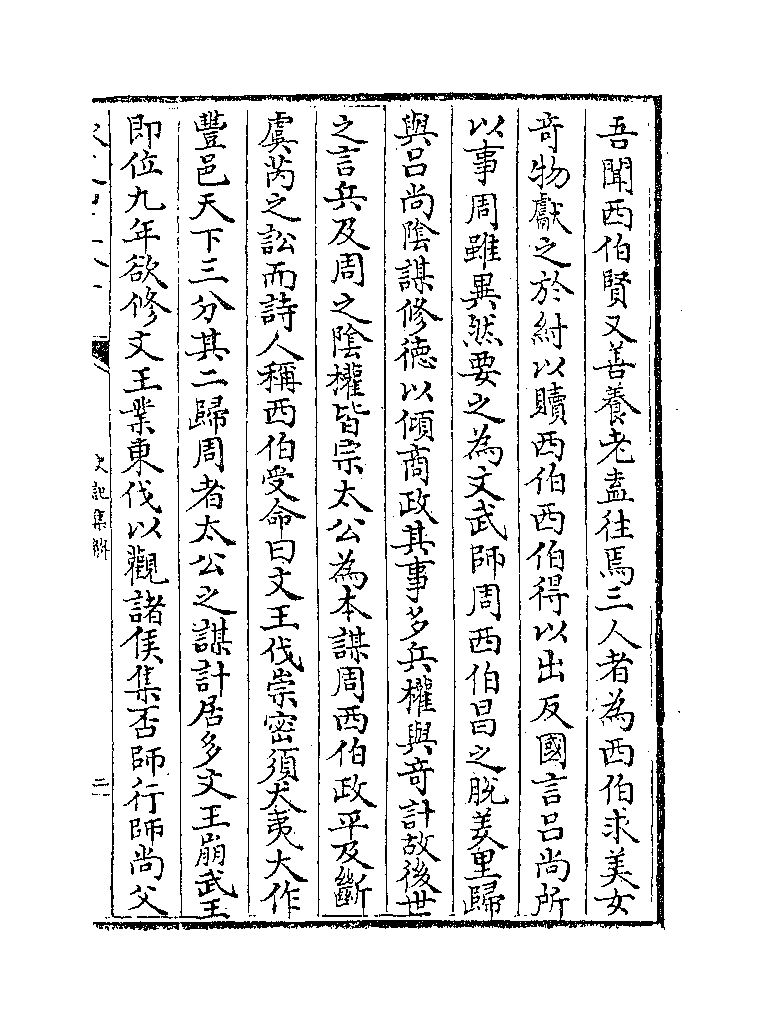 吾聞西伯賢又善養老盍往焉三人者為西伯求美女
奇物獻之於紂以贖西伯西伯得以出反國言呂尚所
以事周雖異然要之為文武師周西伯昌之脫羑里歸
與呂尚陰謀修德以傾商政其事多兵權與奇計故後世
之言兵及周之陰權皆宗太公為本謀周西伯政平及斷
虞芮之訟而詩人稱西伯受命曰文王伐崇密須犬夷大作
豐邑天下三分其二歸周者太公之謀計居多文王崩武王
即位九年欲修文王業東伐以觀諸侯集否師行師尚父
史記集解
二